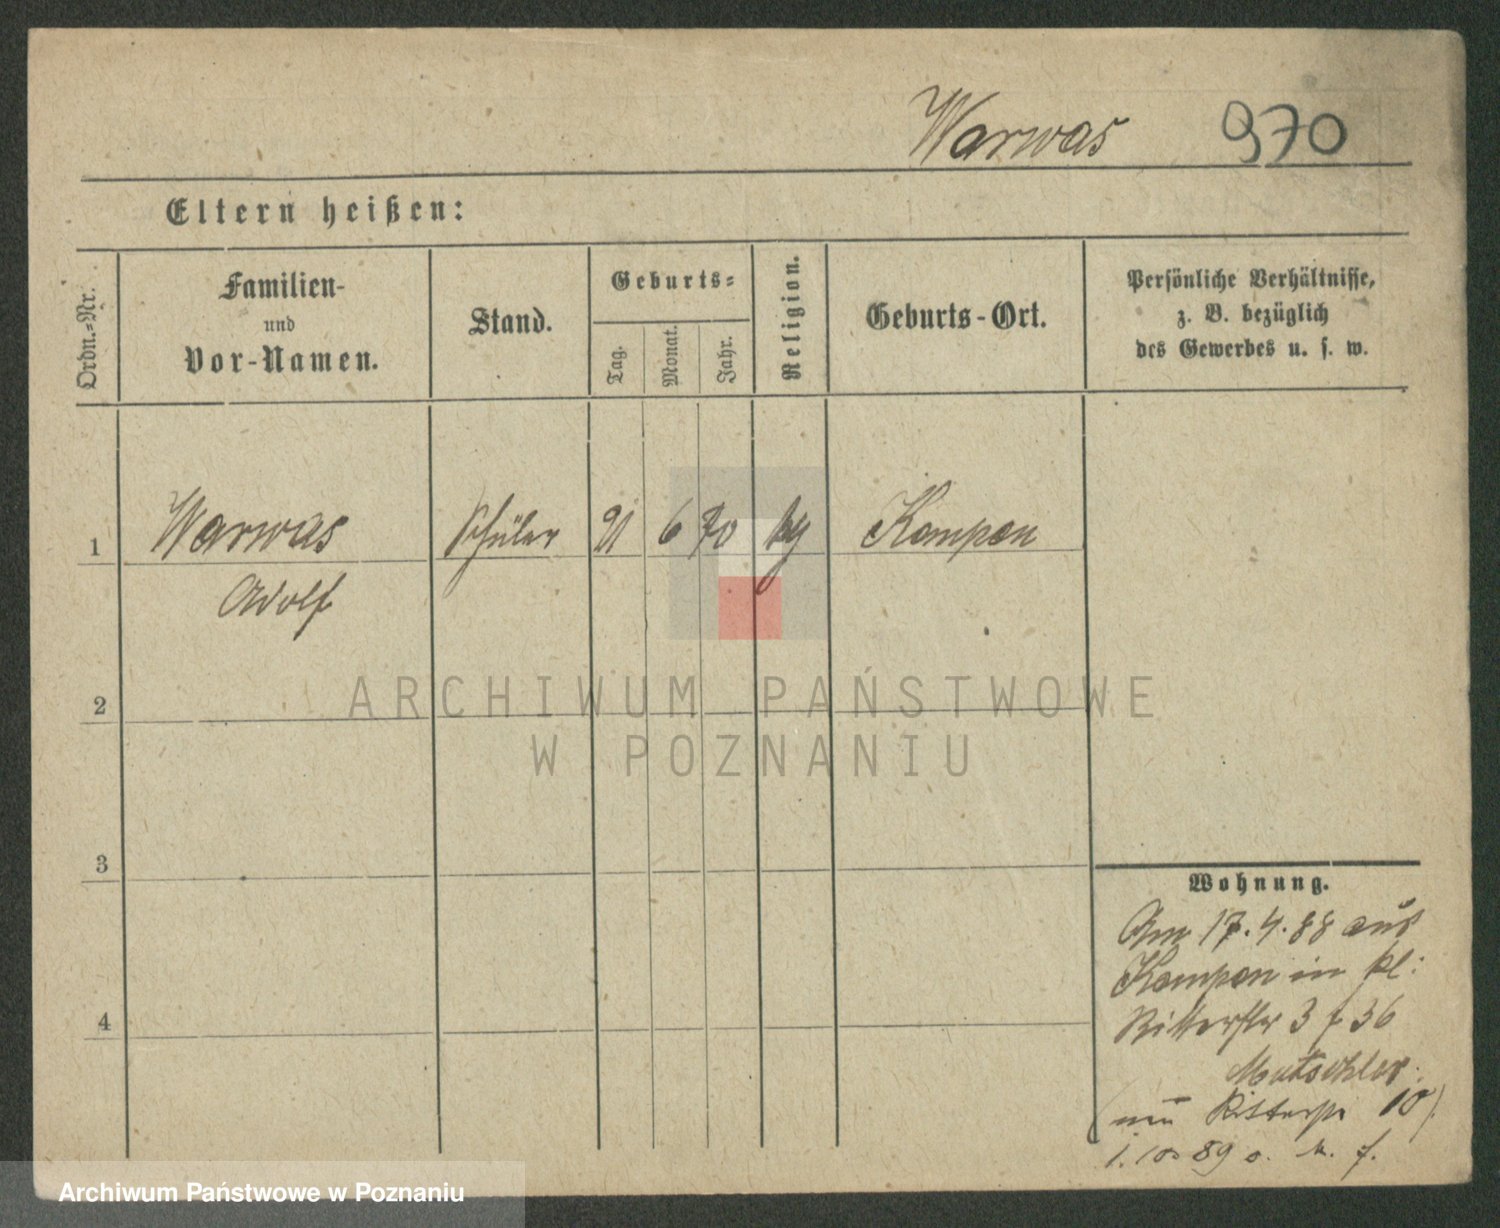 Warwas 970
Eltern heißen:
Ordn.-Nr.
Familien-
und
Vor-Namen.
Stand.
Geburts-
Tag.
Monat.
Jahr.
Religion.
Geburts-Ort.
Persönliche Verhältnisse,
z. B. bezüglich
des Gewerbes u. s. w.
1 Warwas Schüler 21 6 70 kg Kempen
Adolf
2
3
4
ARCHIWUM PAŃSTWOWE
W POZNANIU
Wohnung.
Am 17.4.88 aus
Kempen in kl:
Ritterstr 3 f 36
Mutschler.
Ritterstr 10)
89
Archiwum Państwowe w Poznaniu